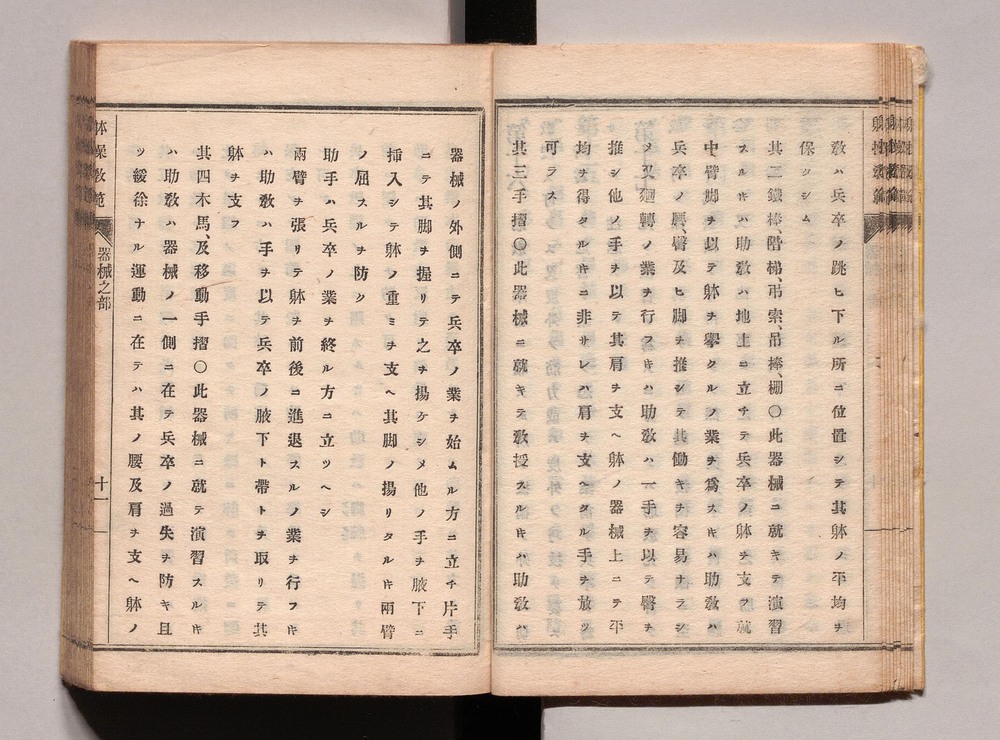 教ハ兵卒ノ跳ヒ下ル所ニ位置シテ其躰ノ平均ヲ
保タシム
其二鐵棒、階梯、吊索、吊棒、棚〇此器械ニ就キテ演習
スルキハ助教ハ地上ニ立チテ兵卒ノ躰ヲ支ヲ就
中臂脚ヲ以テ躰ヲ擧クルノ業ヲ爲スキハ助教ハ
兵卒ノ腰、臀及ヒ脚ヲ推シテ其働キヲ容易ナラシ
メ又廻轉ノ業ヲ行フキハ助教ハ一手ヲ以テ臀ヲ
推シ他ノ手ヲ以テ其肩ヲ支ヘ躰ノ器械上ニテ平
均ヲ得タルキニ非サレハ肩ヲ支ヘタル手ヲ放ツ
可ラス
其三手摺〇此器械ニ就キテ教授スルキハ助教ハ
器械ノ外側ニテ兵卒ノ業ヲ始ムル方ニ立チ片手
ニテ其脚ヲ握リテ之ヲ揚ケシメ他ノ手ヲ腋下ニ
挿入シテ躰ノ重ミヲ支ヘ其脚ノ揚リタルキ兩臂
ノ屈スルヲ防ク
助手ハ兵卒ノ業ヲ終ル方ニ立ツヘシ
兩臂ヲ張リテ躰ヲ前後ニ進退スルノ業ヲ行フキ
ハ助教ハ手ヲ以テ兵卒ノ腋下ト帶トヲ取リテ其
躰ヲ支フ
其四木馬、及移動手摺〇此器械ニ就テ演習スルキ
ハ助教ハ器械ノ一側ニ在テ兵卒ノ過失ヲ防キ且
ツ緩徐ナル運動ニ在テハ其ノ腰及肩ヲ支ヘ躰ノ
体操教範
器械之部
十一